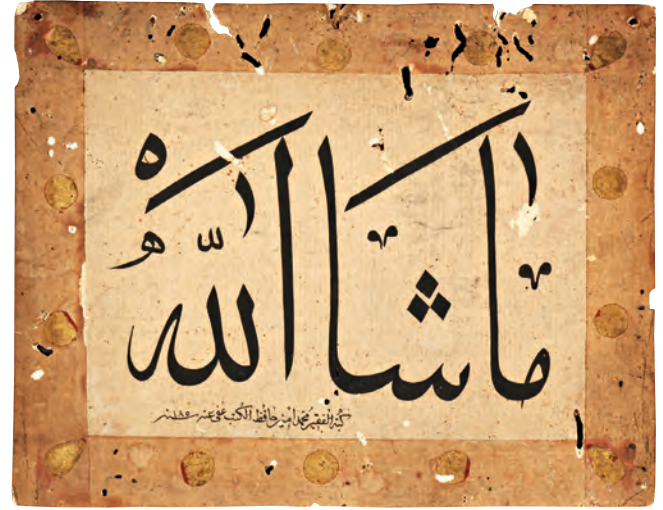 ما شا الله
كتبه الفقير محمد امين حافظ الكتب عفى عنه